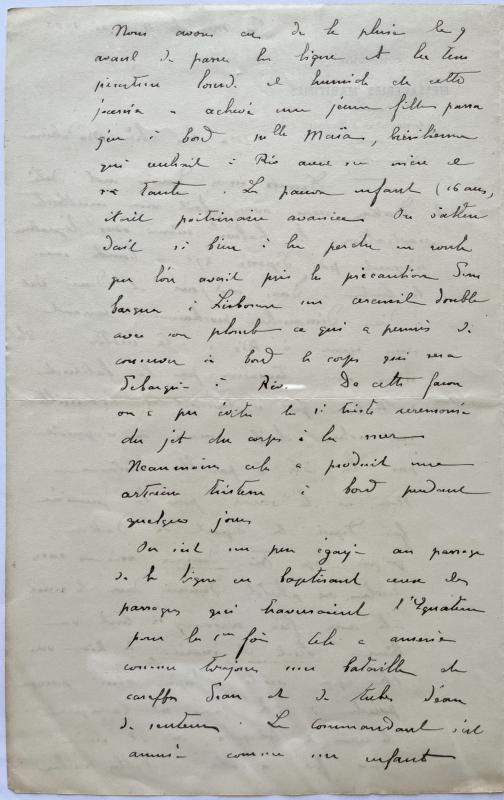 Nous avons eu de la pluie le 9
avant de passer la ligne et la tem
pérature lourde et humide de cette
journée a achevé une jeune fille passa
gère à bord Mlle Maïa, brésilienne
qui rentrait à Rio avec sa mère et
sa tante. La pauvre enfant (16 ans,
était poitrinaire avancée On s'atten
dait si bien à la perdre en route
que l'on avait pris la précaution d'em
barquer à Lisbonne un cercueil double
avec son plomb ce qui a permis de
conserver à bord le corps qui sera
débarqué à Rio. De cette façon
on a pu éviter la si triste cérémonie
du jet du corps à la mer
Néanmoins cela a produit une
certaine tristesse à bord pendant
quelques jours
On s'est un peu égayé au passage
de la ligne en baptisant ceux des
passagers qui traversaient l'Equateur
pour la 1ère fois Cela a amené
comme toujours une bataille de
carafes d'eau et de tubes d'eau
de senteur. Le Commandant s'est
amusé comme un enfant